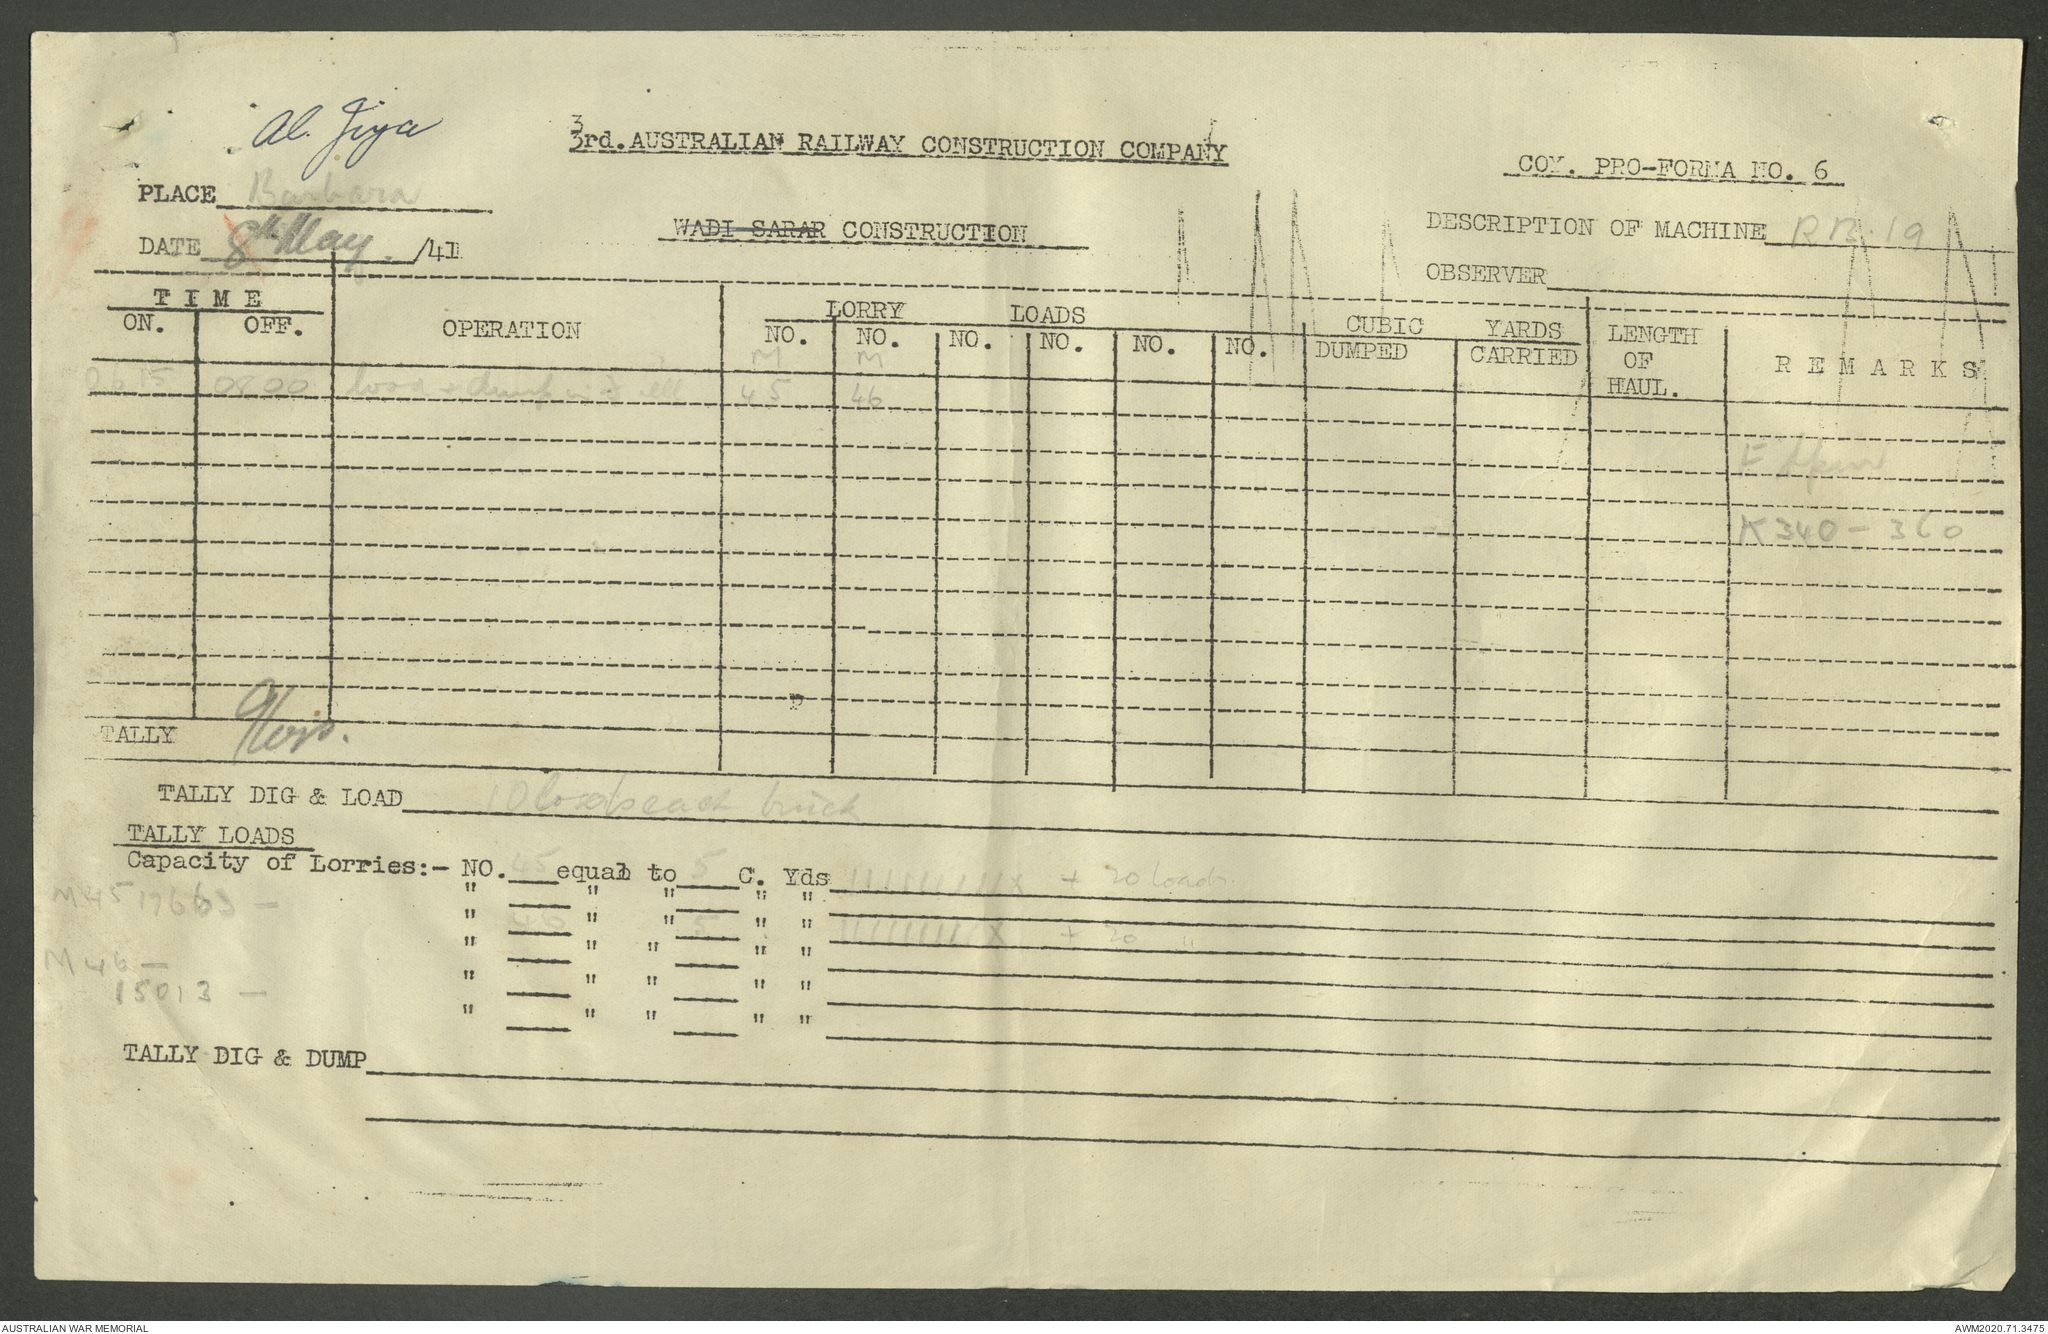 Al. Jiya
3rd. AUSTRALIAN RAILWAY CONSTRUCTION COMPANY
COY. PRO-FORMA NO. 6
PLACE Barbara
WADI SARAR CONSTRUCTION
DESCRIPTION OF MACHINE RB. 19
DATE 8th May. /41
OBSERVER
TIME
LORRY LOADS
CUBIC YARDS
LENGTH OF HAUL.
REMARKS
ON. OFF. OPERATION NO. NO. NO. NO. NO. NO. DUMPED CARRIED
M M
0615 0800 load & dump 45 46
K340 - 360
P
TALLY
TALLY DIG & LOAD 10 loads each truck
TALLY LOADS
Capacity of Lorries:- NO. 45 equal to 5 C. Yds ///////// X + 20 loads
" " " " "
" 46 " " 5 " " ///////// X + 20 "
" " " " "
" " " " "
" " " " "
M45 17663 -
M46 -
15013 -
TALLY DIG & DUMP
AUSTRALIAN WAR MEMORIAL
AWM2020.71.3475